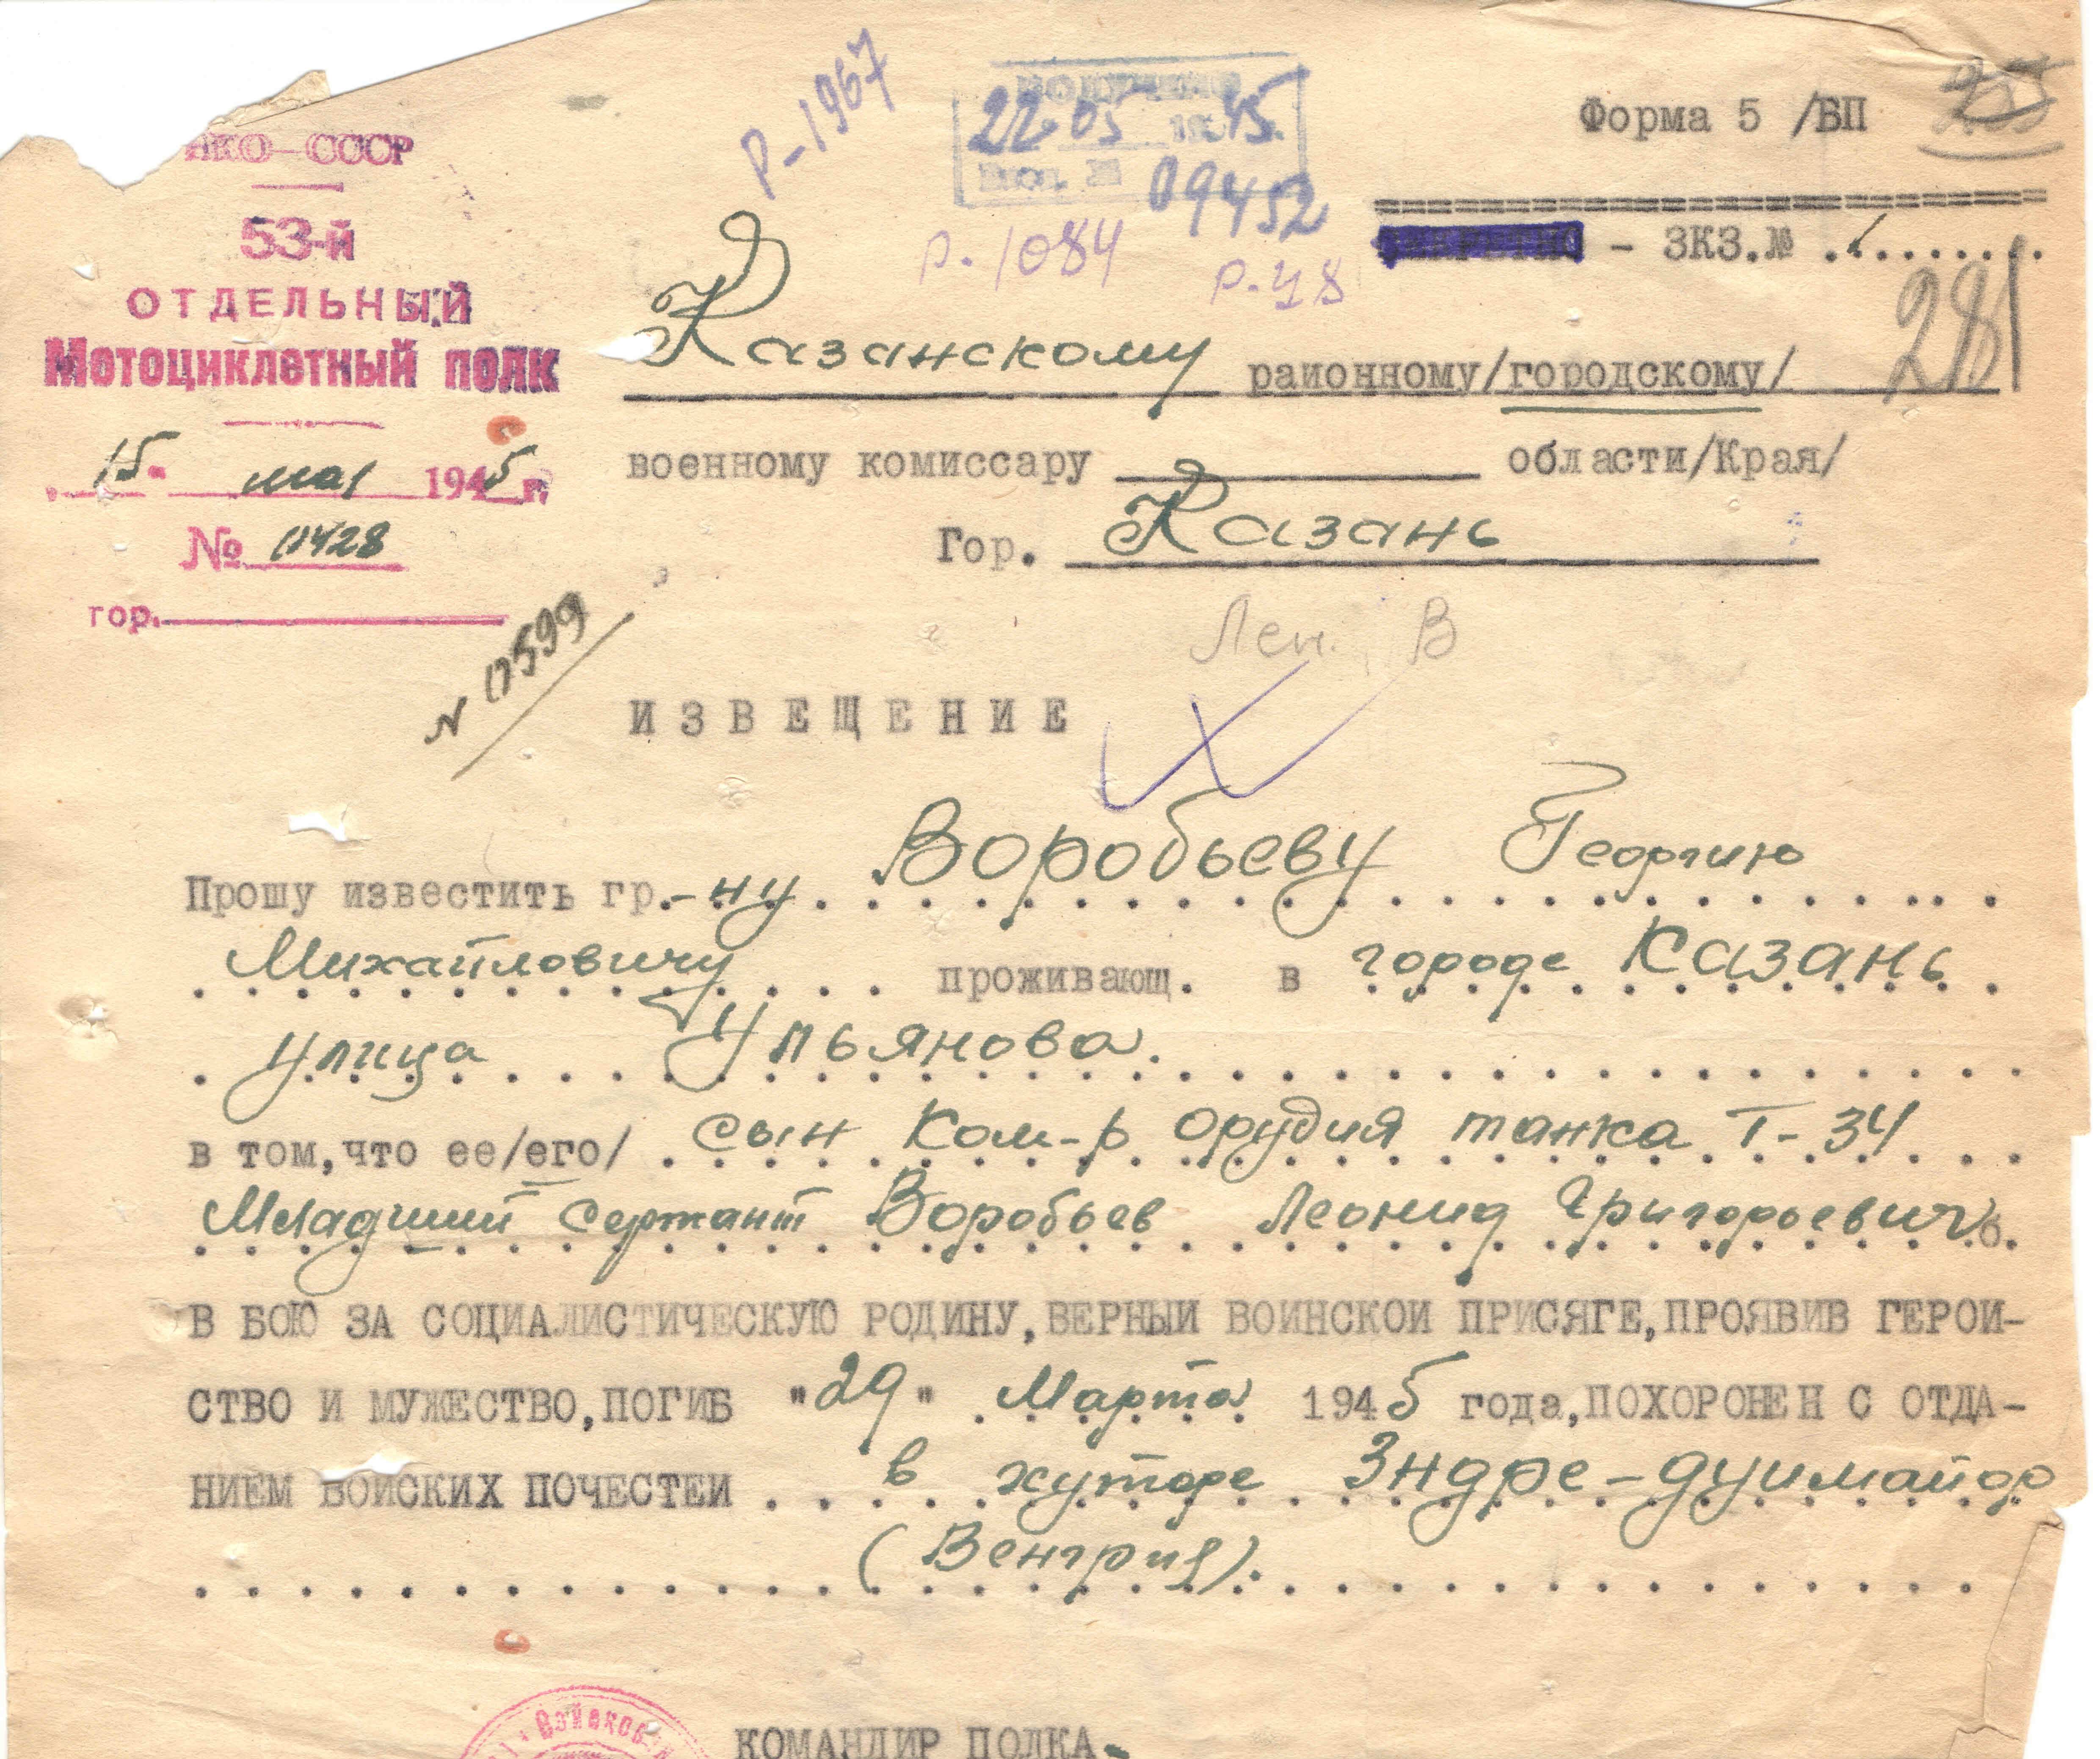 НКО–СССР
53-й
ОТДЕЛЬНЫЙ
Мотоциклетный полк
15 мая 1945 г.
№ 0428
гор.
N 0599
Р-1967
22 05 1945.
Вход. № 09452
р. 1084
р-48
Форма 5 /БП
- ЗКЗ.№ 1
281
Казанскому районному/городскому/
военному комиссару области/Края/
Гор. Казань
Лен. В
ИЗВЕЩЕНИЕ
Прошу известить гр.-ну Воробьеву Георгию
Михайловичу проживающ. в городе Казань
улица Ульянова.
в том,что ее/его/ сын Ком-р орудия танка Т-34
Младший сержант Воробьев Леонид Григорьевич
В БОЮ ЗА СОЦИАЛИСТИЧЕСКУЮ РОДИНУ,ВЕРНЫИ ВОИНСКОИ ПРИСЯГЕ,ПРОЯВИВ ГЕРОИ-
СТВО И МУЖЕСТВО,ПОГИБ "29" Марта 1945 года,ПОХОРОНЕН С ОТДА-
НИЕМ ВОИСКИХ ПОЧЕСТЕИ в хуторе Эндре-дуимайор
(Венгрия).
Войсков
КОМАНДИР ПОЛКА-